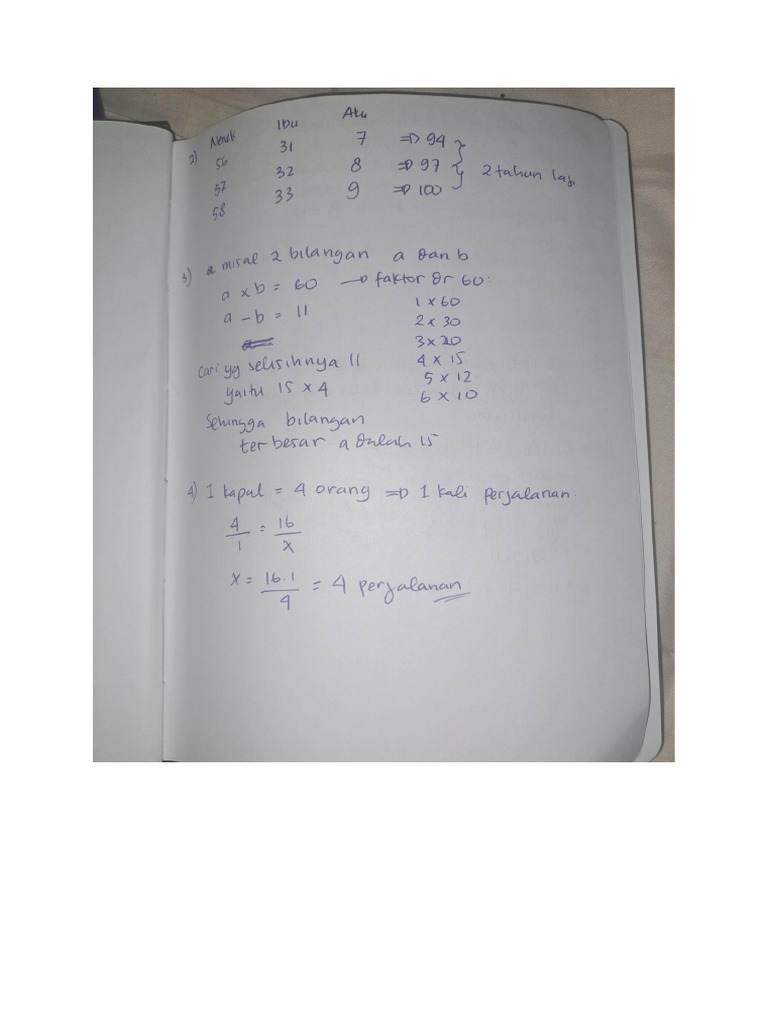 2) Nenek Ibu Aku
56 31 7 => 94
57 32 8 => 97
58 33 9 => 100
} 2 tahun lagi
3) misal 2 bilangan a dan b
a x b = 60 → faktor dr 60:
a - b = 11
1 x 60
2 x 30
3 x 20
4 x 15
5 x 12
6 x 10
Cari yg selisihnya 11
yaitu 15 x 4
Sehingga bilangan
terbesar adalah 15
4) 1 kapal = 4 orang => 1 kali perjalanan.
4/1 = 16/x
x = 16.1/4 = 4 perjalanan